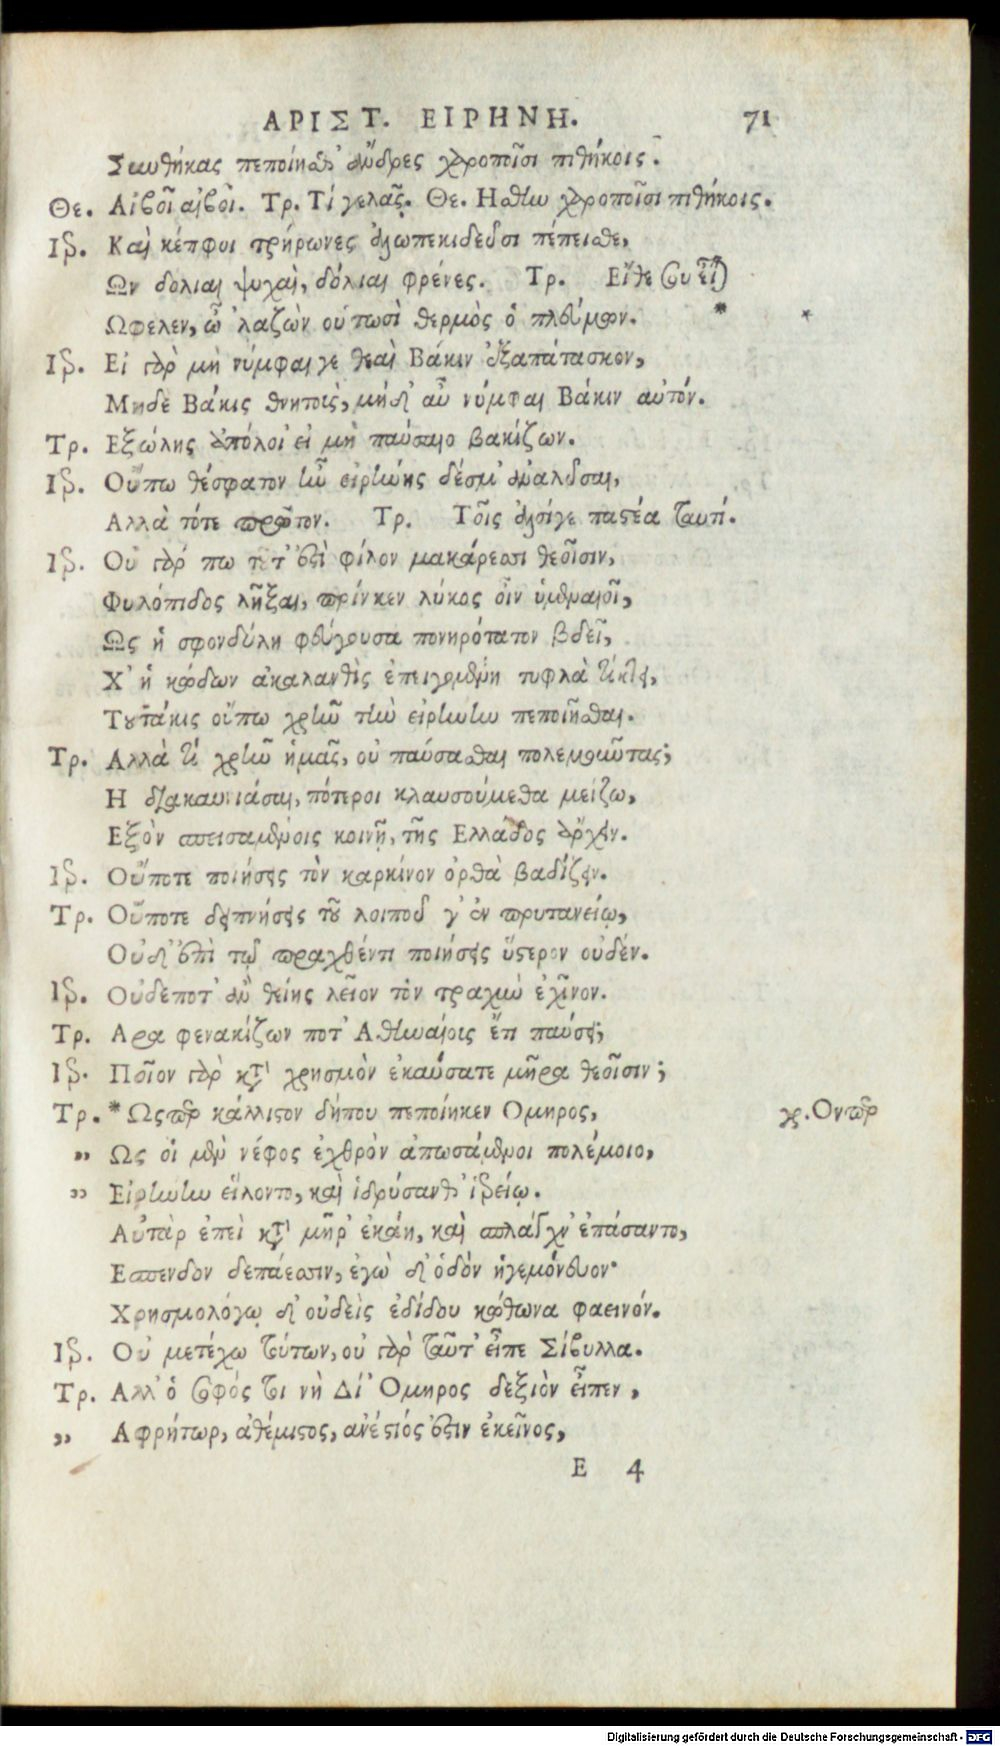 ΑΡΙΣΤ. ΕΙΡΗΝΗ. 71
Συνθήκας πεποίησθ' ἄνδρες χαροποῖσι πιθήκοις.
Θε. Αἰβοῖ αἰβοῖ. Τρ. Τί γελᾷς. Θε. Ησθην χαροποῖσι πιθήκοις.
Ιερ. Καὶ κέπφοι τρήρωνες ἀλωπεκιδεῦσι πέπεισθε,
Ων δολιαι ψυχαὶ, δόλιαι φρένες. Τρ. Εἴθε σου εἶναι
Ωφελεν, ὦ 'λαζὼν οὑτωσὶ θερμὸς ὁ πλεύμων. * *
Ιερ. Εἰ γὰρ μὴ νύμφαι γε θεαὶ Βάκιν ἐξαπάτασκον,
Μηδὲ Βάκις θνητοὶς, μήδ' αὖ νύμφαι Βάκιν αὐτόν.
Τρ. Εξώλης ἀπόλοι' εἰ μὴ παύσαιο βακίζων.
Ιερ. Οὔπω θέσφατον ἦν εἰρήνης δέσμ' ἀναλῦσαι,
Αλλὰ τότε πρῶτον. Τρ. Τοῖς ἁλσίγε παστέα ταυτί.
Ιερ. Οὐ γάρ πω τοτ' ἐστὶ φίλον μακάρεσσι θεοῖσιν,
Φυλόπιδος λῆξαι, πρίνκεν λύκος οἶν ὑμεναιοῖ,
Ως ἡ σφονδύλη φεύγουσα πονηρότατον βδεῖ,
Χ' ἡ κώδων ἀκαλανθὶς ἐπειγομένη τυφλὰ τίκτει,
Τουτάκις οὔπω χρῆν τὴν εἰρήνην πεποιῆσθαι.
Τρ. Αλλὰ τί χρῆν ἡμᾶς, οὐ παύσασθαι πολεμοῦντας;
Η διακαυνιάσαι, πότεροι κλαυσούμεθα μείζω,
Εξὸν σπεισαμένοις κοινῇ, τῆς Ελλάδος ἄρχειν.
Ιερ. Οὔποτε ποιήσεις τὸν καρκίνον ὀρθὰ βαδίζειν.
Τρ. Οὔποτε δειπνήσεις τοῦ λοιποῦ γ' ἐν πρυτανείῳ,
Οὐδ' ἐπὶ τῷ πραχθέντι ποιήσεις ὕστερον οὐδέν.
Ιερ. Οὐδέποτ' ἂν θείης λεῖον τὸν τραχὺν ἐχῖνον.
Τρ. Αρα φενακίζων ποτ' Αθηναίοις ἔτι παύσει;
Ιερ. Ποῖον γὰρ κατὰ χρησμὸν ἐκαύσατε μῆρα θεοῖσιν;
Τρ. * Ωςπερ κάλλιστον δήπου πεποίηκεν Ομηρος, γρ. Ονπερ
„ Ως οἱ μὲν νέφος ἐχθρὸν ἀπωσάμενοι πολέμοιο,
„ Εἰρήνην εἵλοντο, καὶ ἱδρύσανθ' ἱερείῳ.
Αὐτὰρ ἐπεὶ κατὰ μῆρ' ἐκάη, καὶ σπλάγχν' ἐπάσαντο,
Εσπενδον δεπάεσσιν, ἐγὼ δ' ὁδὸν ἡγεμόνευον·
Χρησμολόγῳ δ' οὐδεὶς ἐδίδου κώθωνα φαεινόν.
Ιερ. Οὐ μετέχω τούτων, οὐ γὰρ ταῦτ' εἶπε Σίβυλλα.
Τρ. Αλλ' ὁ σοφός τοι νὴ Δί' Ομηρος δεξιὸν εἶπεν,
„ Αφρήτωρ, ἀθέμιστος, ἀνέστιός ἐστιν ἐκεῖνος,
Ε 4
Digitalisierung gefördert durch die Deutsche Forschungsgemeinschaft - DFG